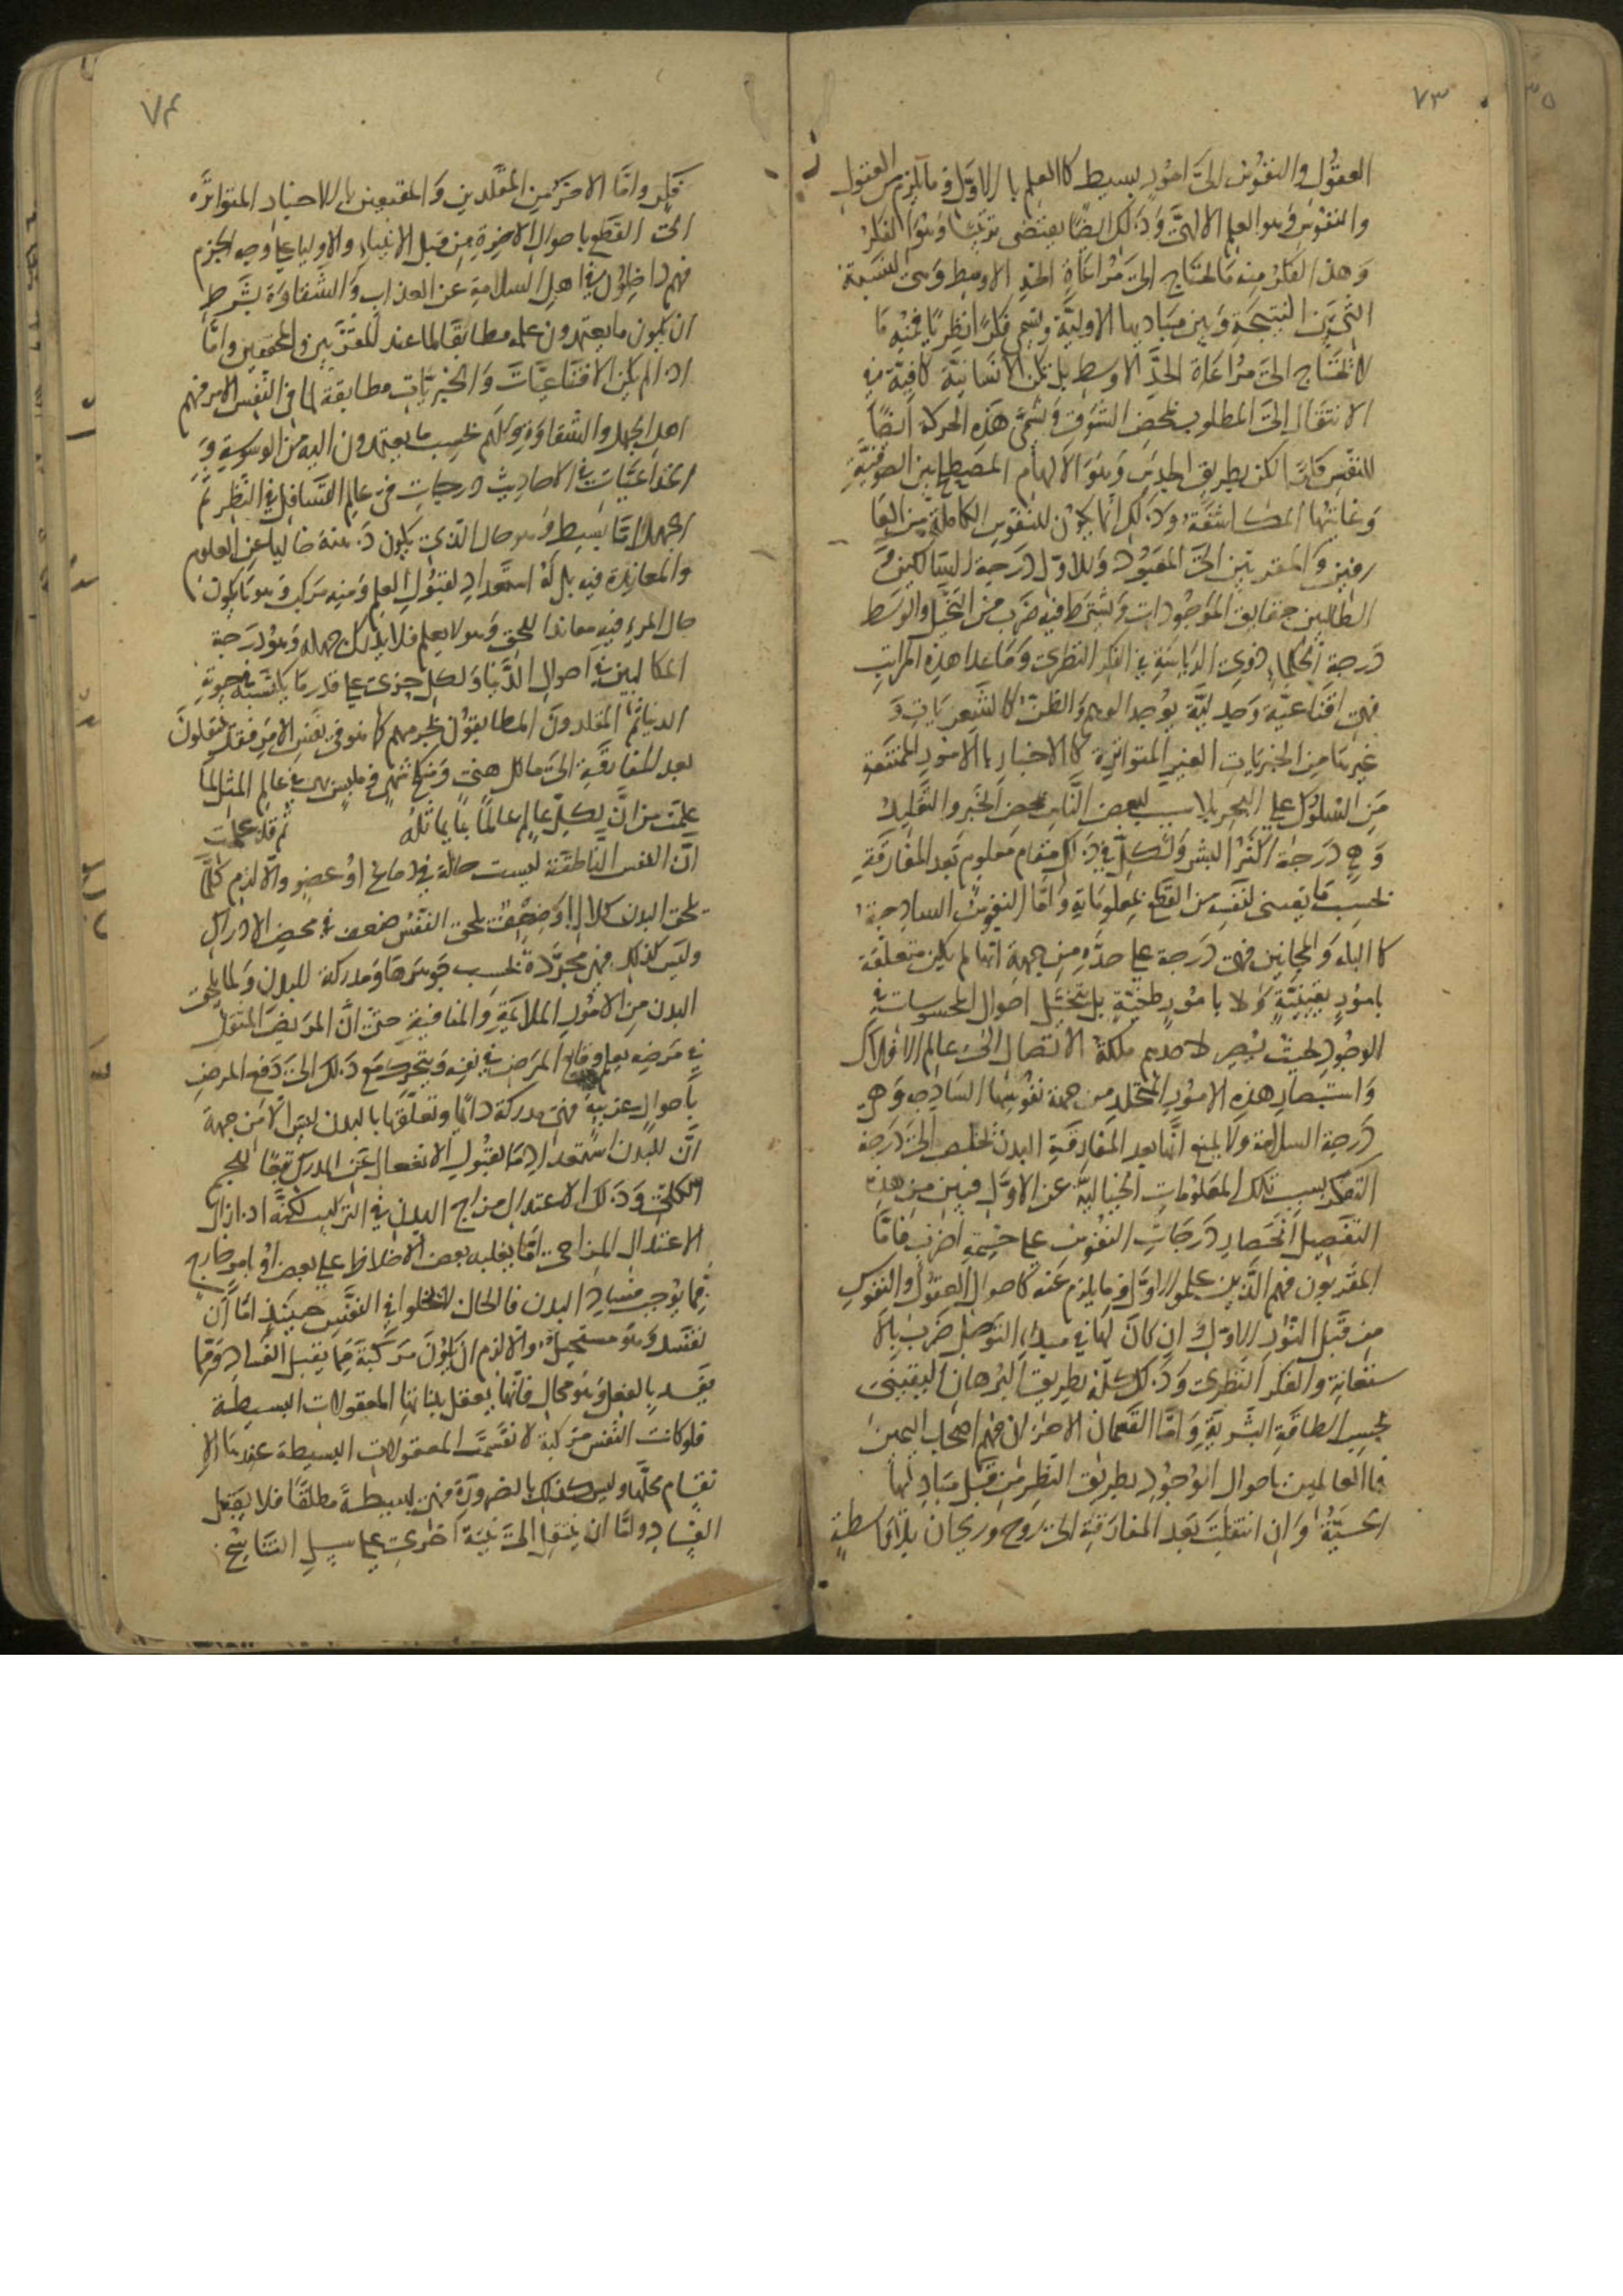 ٧٣
العقول والنفوس الى امور بسيط كاالعلم باالاول وما يلزم من العقول
والنفوس وهو العلم الالهى وذلك ايضًا يقتضى ترتيبًا وهو الفكر
وهذا الفكر منه ما يحتاج الى مراعاة الحد الاوسط وهى النسبة
التى بين النتيجة وبين مباديها الاولية ويسمى فكرًا نظريًا ومنه ما
لا يحتاج الى مراعاة الحد الاوسط بل تكن الانسانية كافية فى
الانتقال الى المطلوب بمحض الشوق وتسمى هذه الحركة ايضًا
للنفس لكن بطريق الحدس وهو الالهام المصطلح بين الصوفية
وغايتها المكاشفة وذلك انما يكون للنفوس الكاملة من العا
رفين والمقربين الى المعبود وللاول درجة السالكين و
الطالبين حقايق الموجودات ويشترط فيه ضرب من التخيل والوسط
درجة الحكماء ذوى الرياسة فى الفكر النظرى وما عدا هذه المراتب
فهى اقناعية وجدلية يوجد الوهم والظن كاالشعريات و
غيرها من الخبريات الغير المتواترة كاالاخبار باالامور الممتنعة
من السلوك على البحر بلا سبب لبعض الناس بمحض الخبر والتقليد
وهى درجة اكثر البشر ولكل فى ذلك مقام معلوم بعد المفارقة
بحسب ما يقتنى لنفسه من القطع بمعلوماته واما النفوس الساذجة
كاالبله والمجانين فهى درجة على حدة من جهة انها لم يكن متعلقة
بامور يقينية ولا بامور ظنية بل بتخيل احوال المحسوسات فى
الوجود بحيث يصير لاحدهم ملكة الاتصال الى عالم الافلاك
واستبصار هذه الامور المتخلد من جهة نفوسها الساذجة وهى
درجة السلامة ولا يمنع انها بعد المفارقة البدن تخلص الى درجة
التفكر بسبب تلك المعلومات الخيالية عن الاول فبين من هذه
التفصيل انحصار درجات النفوس على خمسة اضرب فاما
المقربون فهم الذين علموا الاول وما يلزم عنه كاحوال العقول والنفوس
من قبل النور الاول وان كان لها فى مبداء التوصل ضرب باالا
ستعانة والفكر النظرى وذلك كله بطريق البرهان اليقينى
بحسب الطاقة البشرية واما القسمان الاخران فهم اصحاب اليمين
فاالعالمين باحوال الوجود بطريق النظر من قبل مباديها
الحسية وان انتقلت بعد المفارقة الى روح وريحان بلا واسطة
٧٤
فكر واما الاخر من المقلدين والمقتنعين باالاخبار المتواترة
الى القطع باحوال الاخرة من قبل الانبياء والاولياء على وجه الجزم
فهم داخلون فى اهل السلامة عن العذاب والشقاوة بشرط
ان يكون ما يعتمدون عليه مطابقًا لما عند المقربين والمحققين واما
اذا لم يكن الاقناعيات والخبريات مطابقة لما فى النفس الامر فهم
اهل الجهل والشقاوة وكلهم بحسب ما يعتمدون اليه من الوسوسة و
الخداعيات فى الاحاديث درجات فى عالم التسافل فى النظر ثم
الجهل اما بسيط وهو حال الذى يكون ذهنه خاليا عن العلوم
والمعاندة فيه بل له استعداد لقبول العلم ومنه مركب وهو ما يكون
حال المرء فيه معاندا للحق وهو لا يعلم فلا يدرك جهله وهو درجة
المكالبين فى احوال الدنيا ولكل جزى على قدر ما يكتسبه فى حيوة
الدنيا ثم المقلدون المطابقون لخبرهم كا هو فى نفس الامر فقد ينتقلون
بعد المفارقة الى ماكل هنى ومنكح شهى وملبس بهى فى عالم المثل لما
علمت من ان لكل عالم عالمًا ما يماثله ثم قد علمت
ان النفس الناطقة ليست حالة فى دماغ او عضو والا لزم كلما
يلحق البدن كلال او ضعف يلحق النفس ضعف فى محض الادراك
وليس كذلك فهى مجردة بحسب جوهرها ومدركة للبدن ولما يلحق
البدن من الامور الملائمة والمنافية حتى ان المريض المثقل
فى مرضه يعلم وقايع المرض فى نفسه ويتحرك مع ذلك الى دفع المرض
باحوال غريبة فهى مدركة دائمًا وتعلقها باالبدن ليس الا من جهة
ان للبدن استعدادًا ما لقبول الانفعال عن المدرك
الكلى وذلك الاعتدال مزاج البدن فى التركيب لكنه اذا زال
الاعتدال المزاجى اما بغلبه بعض الاخلاط على بعض او بامر خارج
مما يوجب فساد البدن فالحال لا يخلوا فى النفس حينئذ اما ان
تفسد وهو مستحيل والا لزم ان يكون مركبة مما يقبل الفساد ومما
يفسد بالفعل وهو محال فانها يعقل بذاتها المعقولات البسيطة
فلو كانت النفس مركبة لانقسمت المعقولات البسيطة عندها لا
نقسام محلها وليس كذلك باالضرورة فهى بسيطة مطلقًا فلا يقبل
الفساد واما ان ينتقل الى بنية اخرى على سبيل التناسخ